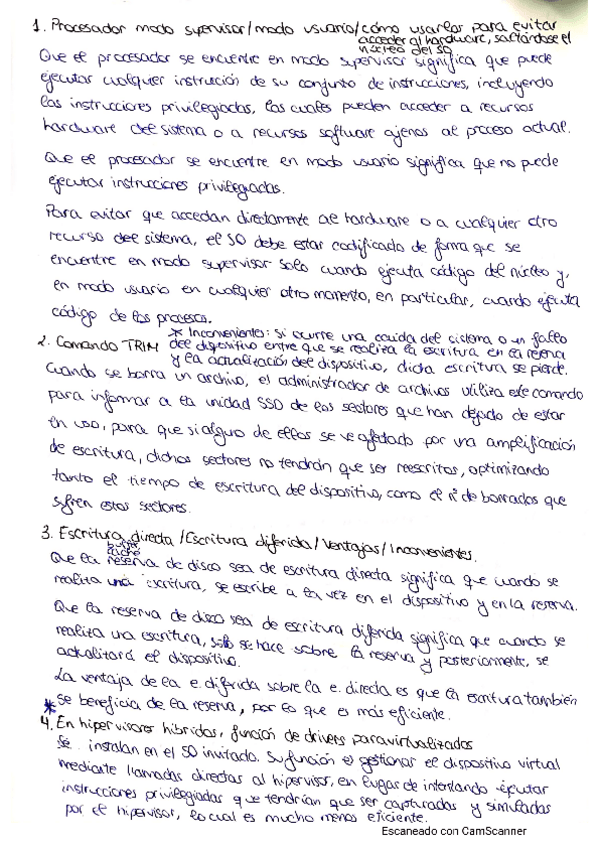 1. Procesador modo supervisor/modo usuario/cómo usarlos para evitar
acceder al hardware, saltándose el
núcleo del SO
Que el procesador se encuentre en modo supervisor significa que puede
ejecutar cualquier instrucción de su conjunto de instrucciones, incluyendo
las instrucciones privilegiadas, las cuales pueden acceder a recursos
hardware del sistema o a recursos software ajenos al proceso actual.
Que el procesador se encuentre en modo usuario significa que no puede
ejecutar instrucciones privilegiadas.
Para evitar que accedan directamente al hardware o a cualquier otro
recurso del sistema, el SO debe estar codificado de forma que se
encuentre en modo supervisor solo cuando ejecuta código del núcleo y,
en modo usuario en cualquier otro momento, en particular, cuando ejecuta
código de los procesos.
* Inconveniente: si ocurre una caída del sistema o un fallo
2. Comando TRIM del dispositivo entre que se realiza la escritura en la reserva
y la actualización del dispositivo, dicha escritura se pierde.
Cuando se borra un archivo, el administrador de archivos utiliza este comando
para informar a la unidad SSD de los sectores que han dejado de estar
en uso, para que si alguno de ellos se ve afectado por una amplificación
de escritura, dichos sectores no tendrán que ser reescritos, optimizando
tanto el tiempo de escritura del dispositivo, como el nº de borrados que
sufren estos sectores.
3. Escritura directa/Escritura diferida/Ventajas/Inconvenientes.
buffer
caché
Que la reserva de disco sea de escritura directa significa que cuando se
realita una escritura, se escribe a la vez en el dispositivo y en la reserva.
Que la reserva de disco sea de escritura diferida significa que cuando se
realita una escritura, sólo se hace sobre la reserva y posteriormente, se
actualitará el dispositivo.
La ventaja de la e. diferida sobre la e. directa es que la escritura también
* se beneficia de la reserva, por lo que es más eficiente.
4. En hipervisores híbridos, función de drivers paravirtualizados
Se instalan en el SO invitado. Su función es gestionar el dispositivo virtual
mediante llamadas directas al hipervisor, en lugar de intentando ejecutar
instrucciones privilegiadas que tendrían que ser capturadas y simuladas
por el hipervisor, lo cual es mucho menos eficiente.
Escaneado con CamScanner